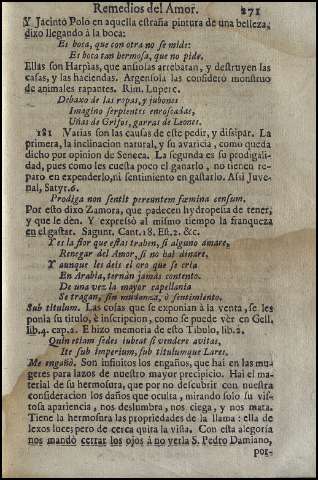 Remedios del Amor. 271
Y Jacinto Polo en aquella estraña pintura de una belleza,
dixo llegando á la boca:
Es boca, que con otra no se mide:
Es boca tan hermosa, que no pide.
Ellas son Harpias, que ansiosas arrebatan, y destruyen las
casas, y las haciendas. Argensola las considerò monstruo
de animales rapantes. Rim. Luperc.
Debaxo de las ropas, y jubones
Imagino serpientes enroscadas,
Uñas de Grifos, garras de Leones.
181 Varias son las causas de este pedir, y disipar. La
primera, la inclinacion natural, y su avaricia, como queda
dicho por opinion de Seneca. La segunda es su prodigali-
dad, pues como les cuesta poco el ganarlo, no tienen re-
paro en expenderlo, ni sentimiento en gastarlo. Assi Juve-
nal, Satyr. 6.
Prodiga non sentit pereuntem fœmina censum.
Por esto dixo Zamora, que padecen hydropesìa de tener,
y que le den. Y expressó al mismo tiempo la franqueza
en el gastar. Sagunt. Cant. 18. Est. 2. &c.
Y es la flor que estas traben, si alguno amare,
Renegar del Amor, si no hai dinare,
Y aunque les deis el oro que se cria
En Arabia, ternàn jamàs contento.
De una vez la mayor capellania
Se tragan, sin mudanza, ò sentimiento.
Sub titulum. Las cosas que se exponian à la venta, se les
ponia su titulo, è inscripcion, como se puede vèr en Gell,
lib. 4. cap. 2. E hizo memoria de esto Tibulo, lib. 2.
Quin etiam sedes iubeat si vendere avitas,
Ite sub imperium, sub titulumque Lares.
Me engañò. Son infinitos los engaños, que hai en las mu-
geres para lazos de nuestro mayor precipicio. Hai el ma-
terial de su hermosura, que por no descubrir con nuestra
consideracion los daños que oculta, mirando solo su vis-
tosa apariencia, nos deslumbra, nos ciega, y nos mata.
Tiene la hermosura las propiedades de la llama: ella de
lexos luce; pero de cerca quita la vista. Con esta alegoria
nos mandò cerrar los ojos á no verla S. Pedro Damiano,
por-